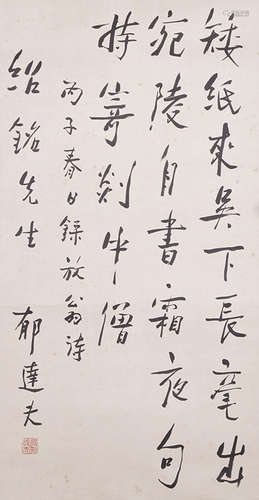 矮紙來吳下長毫出
宛陵自書霜夜句
持寄剡中僧
丙子春日錄放翁詩
紹銘先生
郁達夫